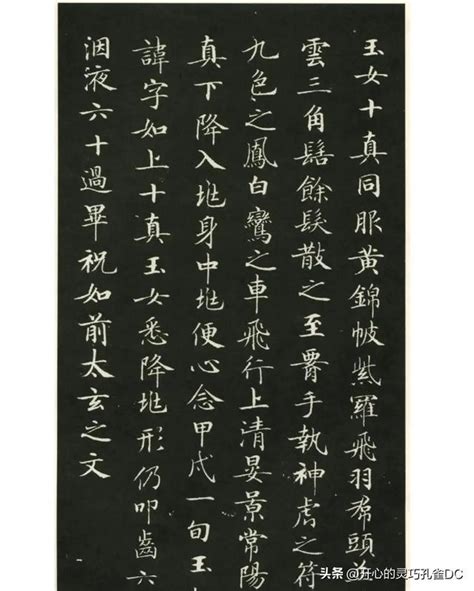 玉女十真同服黃錦帔紫羅飛羽帬頭
雲三角髻餘髮散之至腰手執神虎之符
九色之鳳白鸞之車飛行上清晏景常陽
真下降入兆身中兆便心念甲戌一旬玉
諱字如上十真玉女悉降兆形仍叩齒六
洇液六十過畢祝如前太玄之文
头条 @开心的灵巧孔雀DC